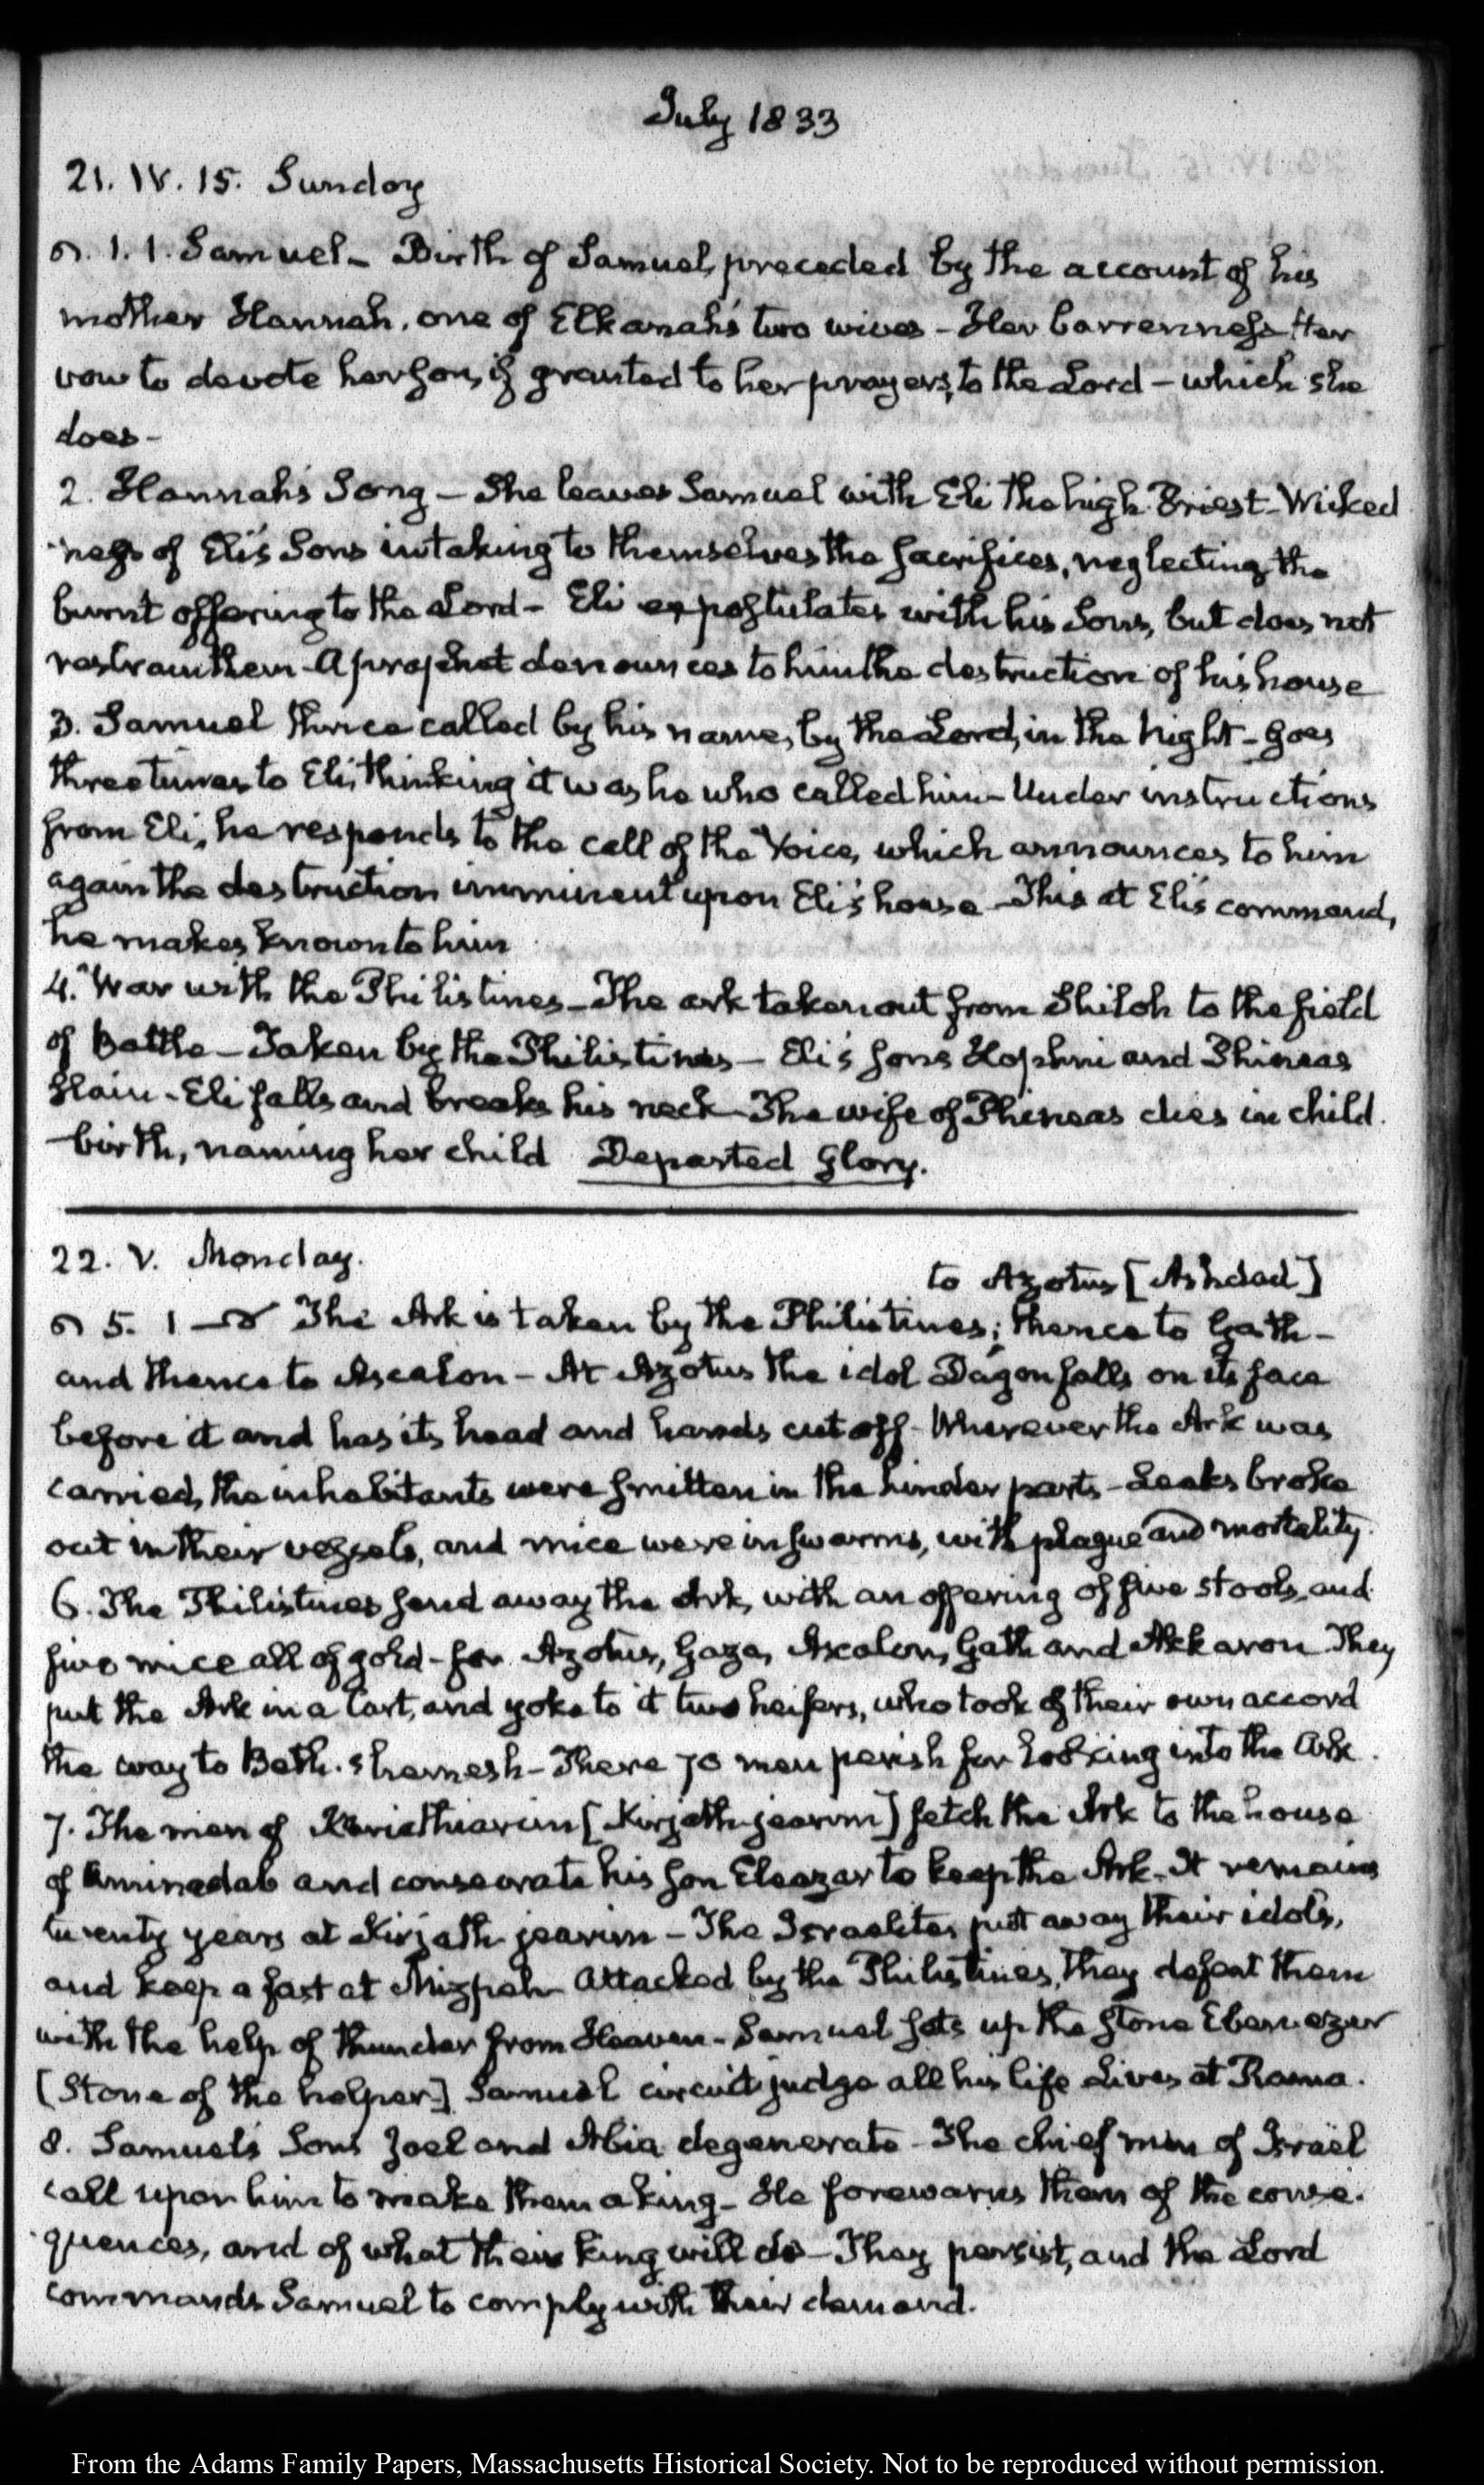 July 1833
21. IV. 15. Sunday
1. 1. Samuel – Birth of Samuel, preceded by the account of his
mother Hannah, one of Elkanah's two wives – Her barrenness Her
vow to devote her Son, if granted to her prayers, to the Lord – which she
does –
2. Hannah's Song – She leaves Samuel with Eli the high Priest – Wicked
ness of Eli's Sons in taking to themselves the Sacrifices, neglecting the
burnt offering to the Lord – Eli expostulates with his Sons, but does not
restrain them – A prophet denounces to him the destruction of his house
3. Samuel thrice called by his name, by the Lord, in the night – goes
three times to Eli, thinking it was he who called him – Under instructions
from Eli, he responds to the call of the Voice, which announces to him
again the destruction imminent upon Eli's house – This at Eli's command,
he makes known to him
4. War with the Philistines – The ark taken out from Shiloh to the field
of Battle – Taken by the Philistines – Eli's sons Hophni and Phineas
Slain – Eli falls and breaks his neck – The wife of Phineas dies in child
-birth, naming her child Departed Glory.
22. V. Monday.
to Azotus [Ashdad]
5. 1 – 8 The Ark is taken by the Philistines; thence to Gath –
and thence to Ascalon – At Azotus the idol Dagon falls on its face
before it and has its head and hands cut off – Wherever the Ark was
carried, the inhabitants were smitten in the hinder parts – Leaks broke
out in their vessels, and mice were in swarms, with plague and mortality.
6. The Philistines send away the Ark, with an offering of five stools, and
five mice all of gold – for Azotus, Gaza, Ascalon, Gath and Akkaron They
put the Ark in a Cart, and yoke to it two heifers, who took of their own accord
the way to Beth-shemesh – There 70 men perish for looking into the Ark.
7. The men of Kariathiarim [Kirjath-jearim] fetch the Ark to the house
of Aminadab and consecrate his son Eleazar to keep the Ark – It remains
twenty years at Kirjath-jearim – The Israelites put away their idols,
and keep a fast at Mizpah – Attacked by the Philistines, they defeat them
with the help of thunder from Heaven – Samuel sets up the stone Ebenezer
[Stone of the helper] Samuel circuit judge all his life Lives at Rama.
8. Samuel's Sons Joel and Abia degenerate – The chief men of Israel
call upon him to make them a king – He forewarns them of the conse-
quences, and of what their king will do – They persist, and the Lord
commands Samuel to comply with their demand.
From the Adams Family Papers, Massachusetts Historical Society. Not to be reproduced without permission.